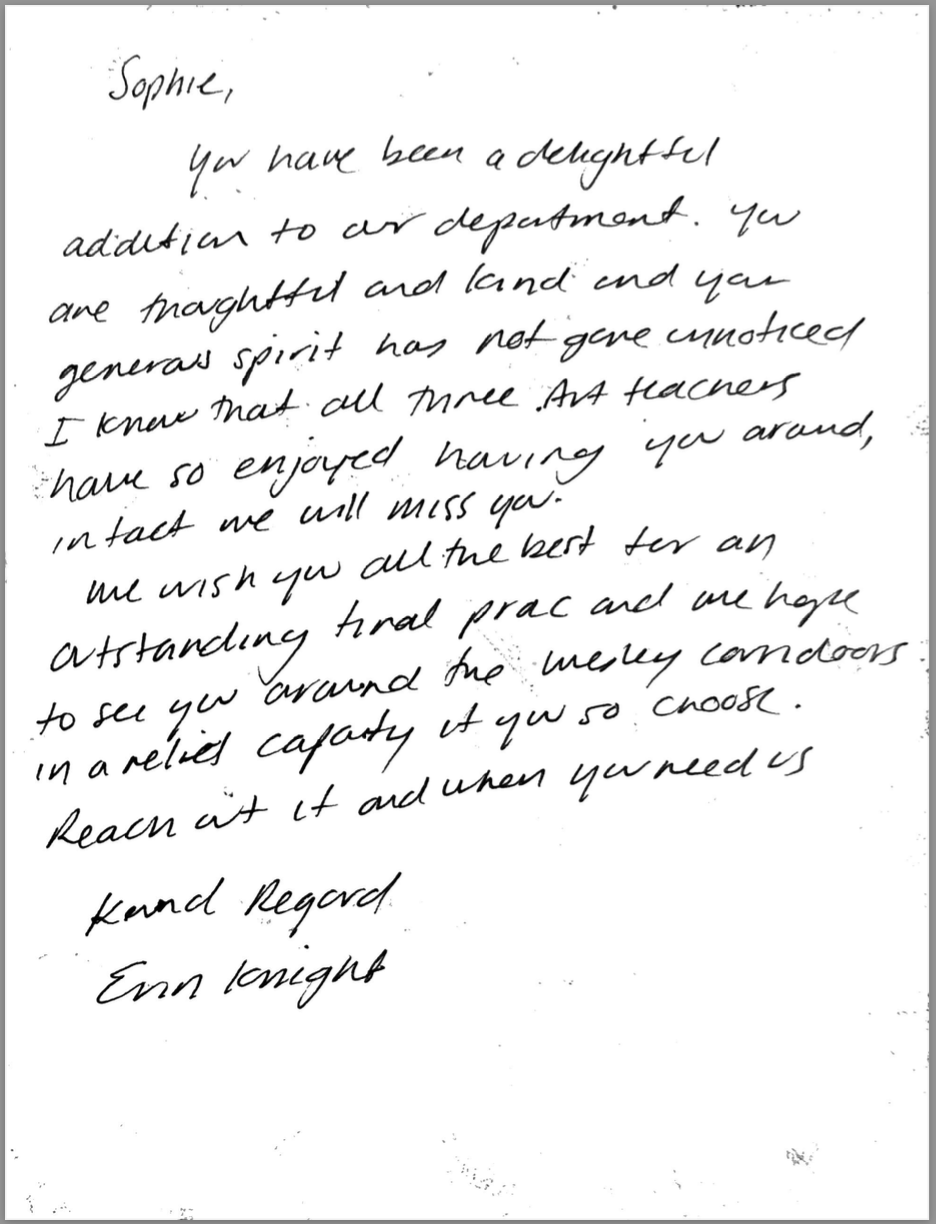 Sophie,
You have been a delightful
addition to our department. You
are thoughtful and kind and your
generous spirit has not gone unnoticed
I know that all three Art teachers
have so enjoyed having you around,
in fact we will miss you.
We wish you all the best for an
outstanding final prac and we hope
to see you around the Wesley corridoors
in a relief capacity if you so choose.
Reach out if and when you need us
Kind Regard
Erin Knight